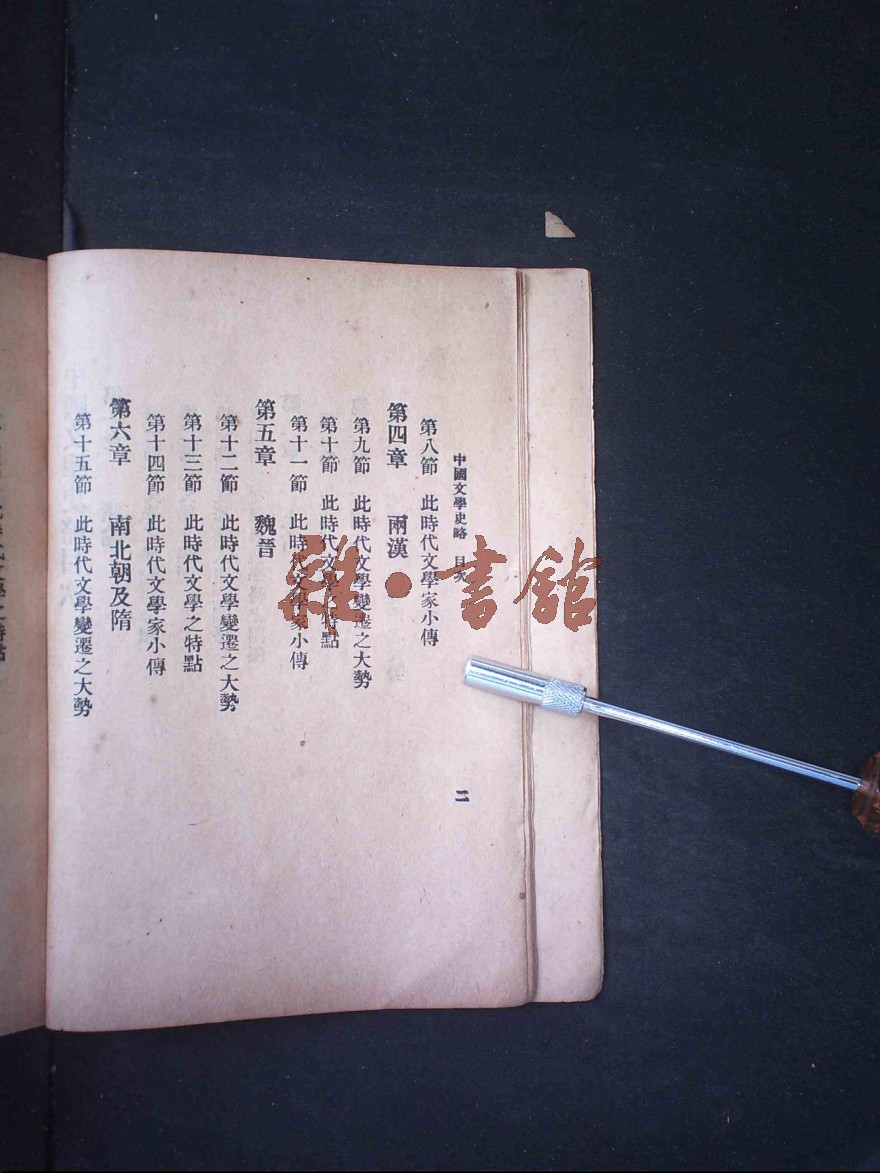 中國文學史略　目次
二
第八節　此時代文學家小傳
第四章　兩漢
第九節　此時代文學變遷之大勢
第十節　此時代文學之特點
第十一節　此時代文學家小傳
第五章　魏晉
第十二節　此時代文學變遷之大勢
第十三節　此時代文學之特點
第十四節　此時代文學家小傳
第六章　南北朝及隋
第十五節　此時代文學變遷之大勢
雜·書館